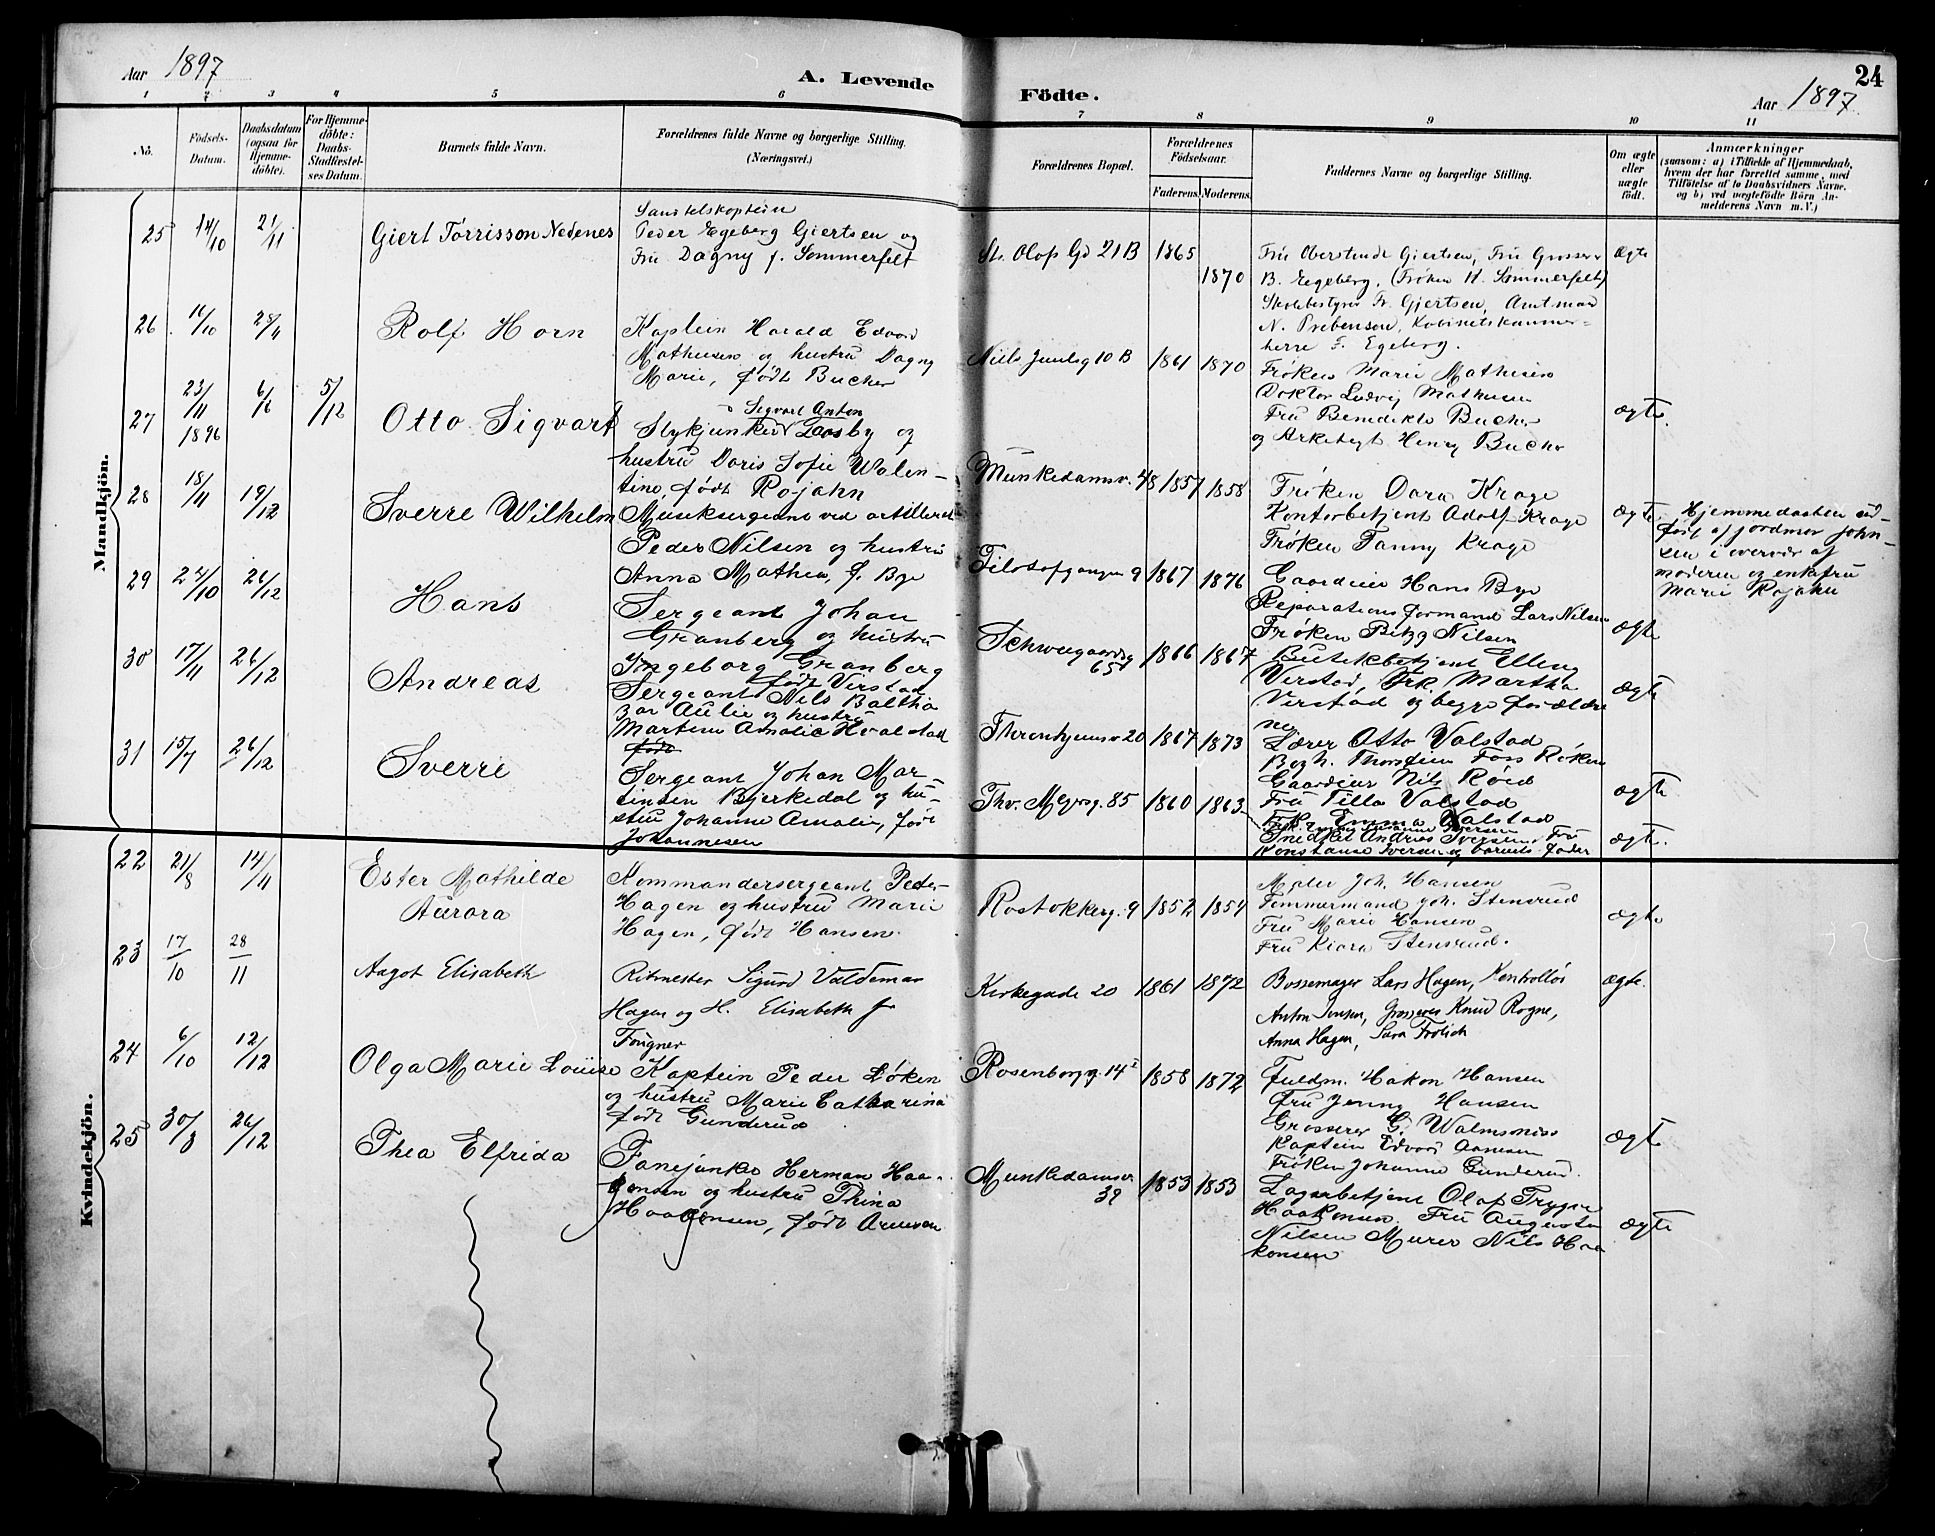 Aar 1897
A. Levende
1 2 3 4 5 6
No.
Födsels-
Datum.
Daabsdatum
(ogsaa för
Hjemme-
döbte).
For Hjemme-
döbte:
Daabs-
Stadfæstel-
ses Datum.
Barnets fulde Navn.
Forældrenes fulde Navne og borgerlige Stilling.
(Næringsvei.)
Mandkjön.
25 14/10 21/11 Giert Törrisson Nedenes
Peder Egeberg Giertsen og
Fru Dagny f. Sommerfelt
26 16/10 28/11 Rolf Horn
Kaptein Harald Edvard
Mathiesen og hustru Dagny
Marie, født Bucher
27 23/11 1896 6/6 5/12 Otto Sigvart
Sigvart Anton
Stykjunker Laasby og
hustru Doris Sofie Walen-
tine, født Rojahn
28 18/11 19/12 Sverre Wilhelm
Musiksergeant ved artilleriet
Peder Nilsen og hustru
Anna Mathea, f. Bye
29 24/10 26/12 Hans
Sergeant Johan
Granberg og hustru
Ingeborg Granberg
født Verstad
30 17/11 26/12 Andreas
Sergeant Nils Baltha
zar Aulie og hustru
Martine Amalie Hvalstad
født
31 15/7 26/12 Sverre
Sergeant Johan Mar-
tinsen Bjerkedal og hu-
stru Johanne Amalie, født
Johannesen
Kvindekjön.
22 21/8 14/11 Ester Mathilde
Aurora
Kommandersergeant Peder
Hagen og hustru Marie
Hagen, født Hansen.
23 17/10 28/11 Aagot Elisabeth
Ritmester Sigurd Valdemar
Hagen og H. Elisabeth f.
Fougner
24 6/10 12/12 Olga Marie Louise
Kaptein Peder Løken
og hustru Marie Catharina
født Gunderud
25 30/8 26/12 Thea Elfrida
Fanejunker Herman Haa-
gensen og hustru Thina
Haagensen, født Arnesen
Födte.
24
Aar 1897.
7 8 9 10 11
Forældrenes Bopæl.
Forældrenes
Födselsaar.
Faderens. Moderens.
Faddernes Navne og borgerlige Stilling.
Om ægte
eller
uægte
födt.
Anmærkninger
(saasom: a) i Tilfælde af Hjemmedaab,
hvem der har forrettet samme, med
Tilföielse af to Daabsvidners Navne.
og b) ved uægtefödte Börn An-
melderens Navn m. V.)
St. Olafs Gd 21 B 1865 1870
Fru Oberstinde Giertsen, Fru Grosserer
B. Egeberg, (Frøken H. Sømmerfelt)
Skolebestyrer Fr. Gjertsen, Amtmand
N. Prebensen, Kabinetskammer-
herre F. Egeberg.
Ægte
Niels Juulsg 10 B 1861 1870
Frøken Marie Mathiesen
Doktor Ludvig Mathiesen
Fru Benedikte Bucher
og Arkitekt Henry Bucher
ægte.
Munkedamsv. 48 1857 1858
Frøken Dora Krage
Kontorbetjent Adolf Krage
Frøken Fanny Krage
ægte.
Hjemmedaaben ud-
ført af jordmor John-
sen i overvær af
moderen og enkefru
Marie Rojahn
Filosofgangen 9 1867 1876
Gaardeier Hans Bye
Reparationsformand Lars Nilsen
Frøken Betzy Nilsen
ægte
Schweigaardsg 65 1866 1867
Butikbetjent Elling
Verstad, Frk. Martha
Verstad og begge forældre
ne
ægte
Thronhjemsv. 20 1867 1873
Lærer Otto Valstad
Bogh. Thorstein Foss Røken
Gaardeier Nils Røed
Fru Tilla Valstad
Frk. Emma Valstad
ægte
Thv. Meyersg. 85 1860 1863
Snedker Andreas Iversen, Fru
Konstanse Iversen og barnets fader
ægte.
Rostokkerg. 9 1852 1854
Maler Joh. Hansen
Tømmermand Joh. Stensrud
Fru Marie Hansen
Fru Klara Stensrud.
ægte
Kirkegade 20 1861 1872
Bossemager Lars Hagen, Kontrollør
Anton Jensen, Grosserer Knud Rogne,
Anna Hagen, Sara Frölich
ægte.
Rosenborgg. 14 I 1858 1872
Fuldm. Hakon Hansen
Fru Jenny Hansen
Grosserer G. Walmsniss
Kaptein Edvard Aamesen
Frøken Johanne Gunderud.
ægte
Munkedamsv 39 1853 1853
Lagerbetjent Olaf Trygve
Haakonsen. Fru Augusta
Nilsen Murer Nils Haa
konsen
ægte